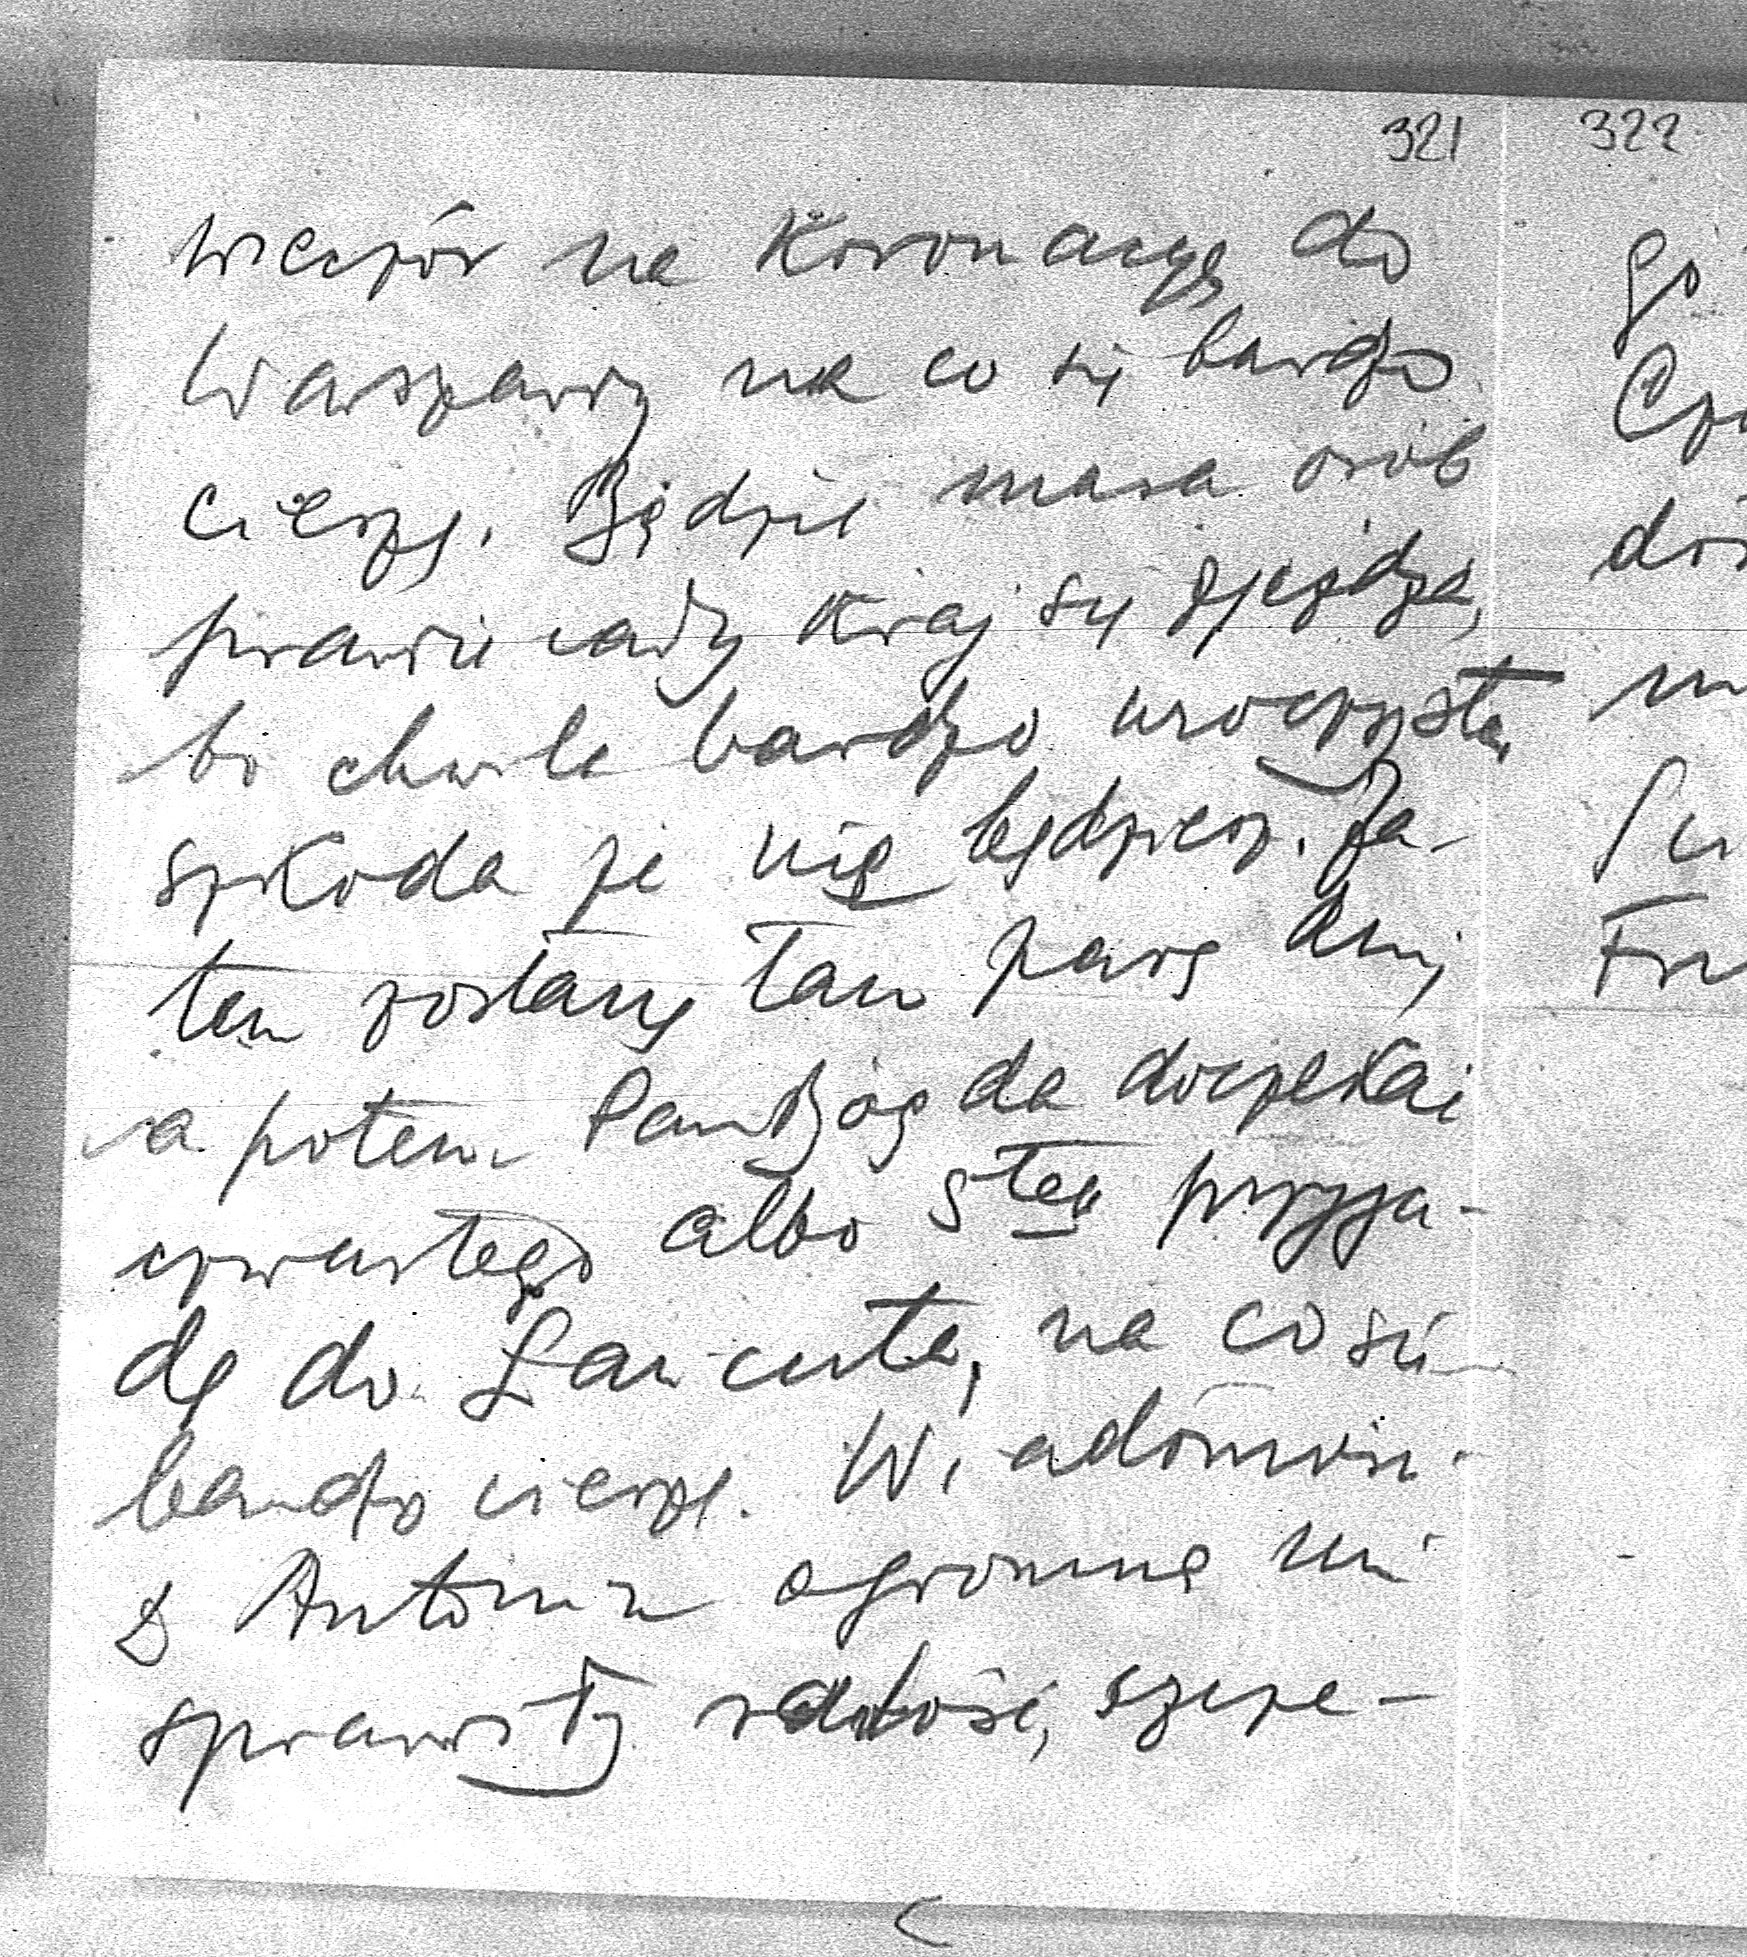 321
322
wieczór na Koronacyę do
Warszawy na co się bardzo
cieszę. Będzie masa osób
prawie cały Kraj się zjeżdża,
bo chwila bardzo uroczysta,
szkoda że nie będziesz. Za-
tem zostanę tam parę dni,
a potem Pan Bóg da doczekać
czwartego albo 5tego przyja-
dę do Łańcuta, na co się
bardzo cieszę. Wiadomość
z Antonin ogromną mi
sprawiły radość, szcze-
go
Fr